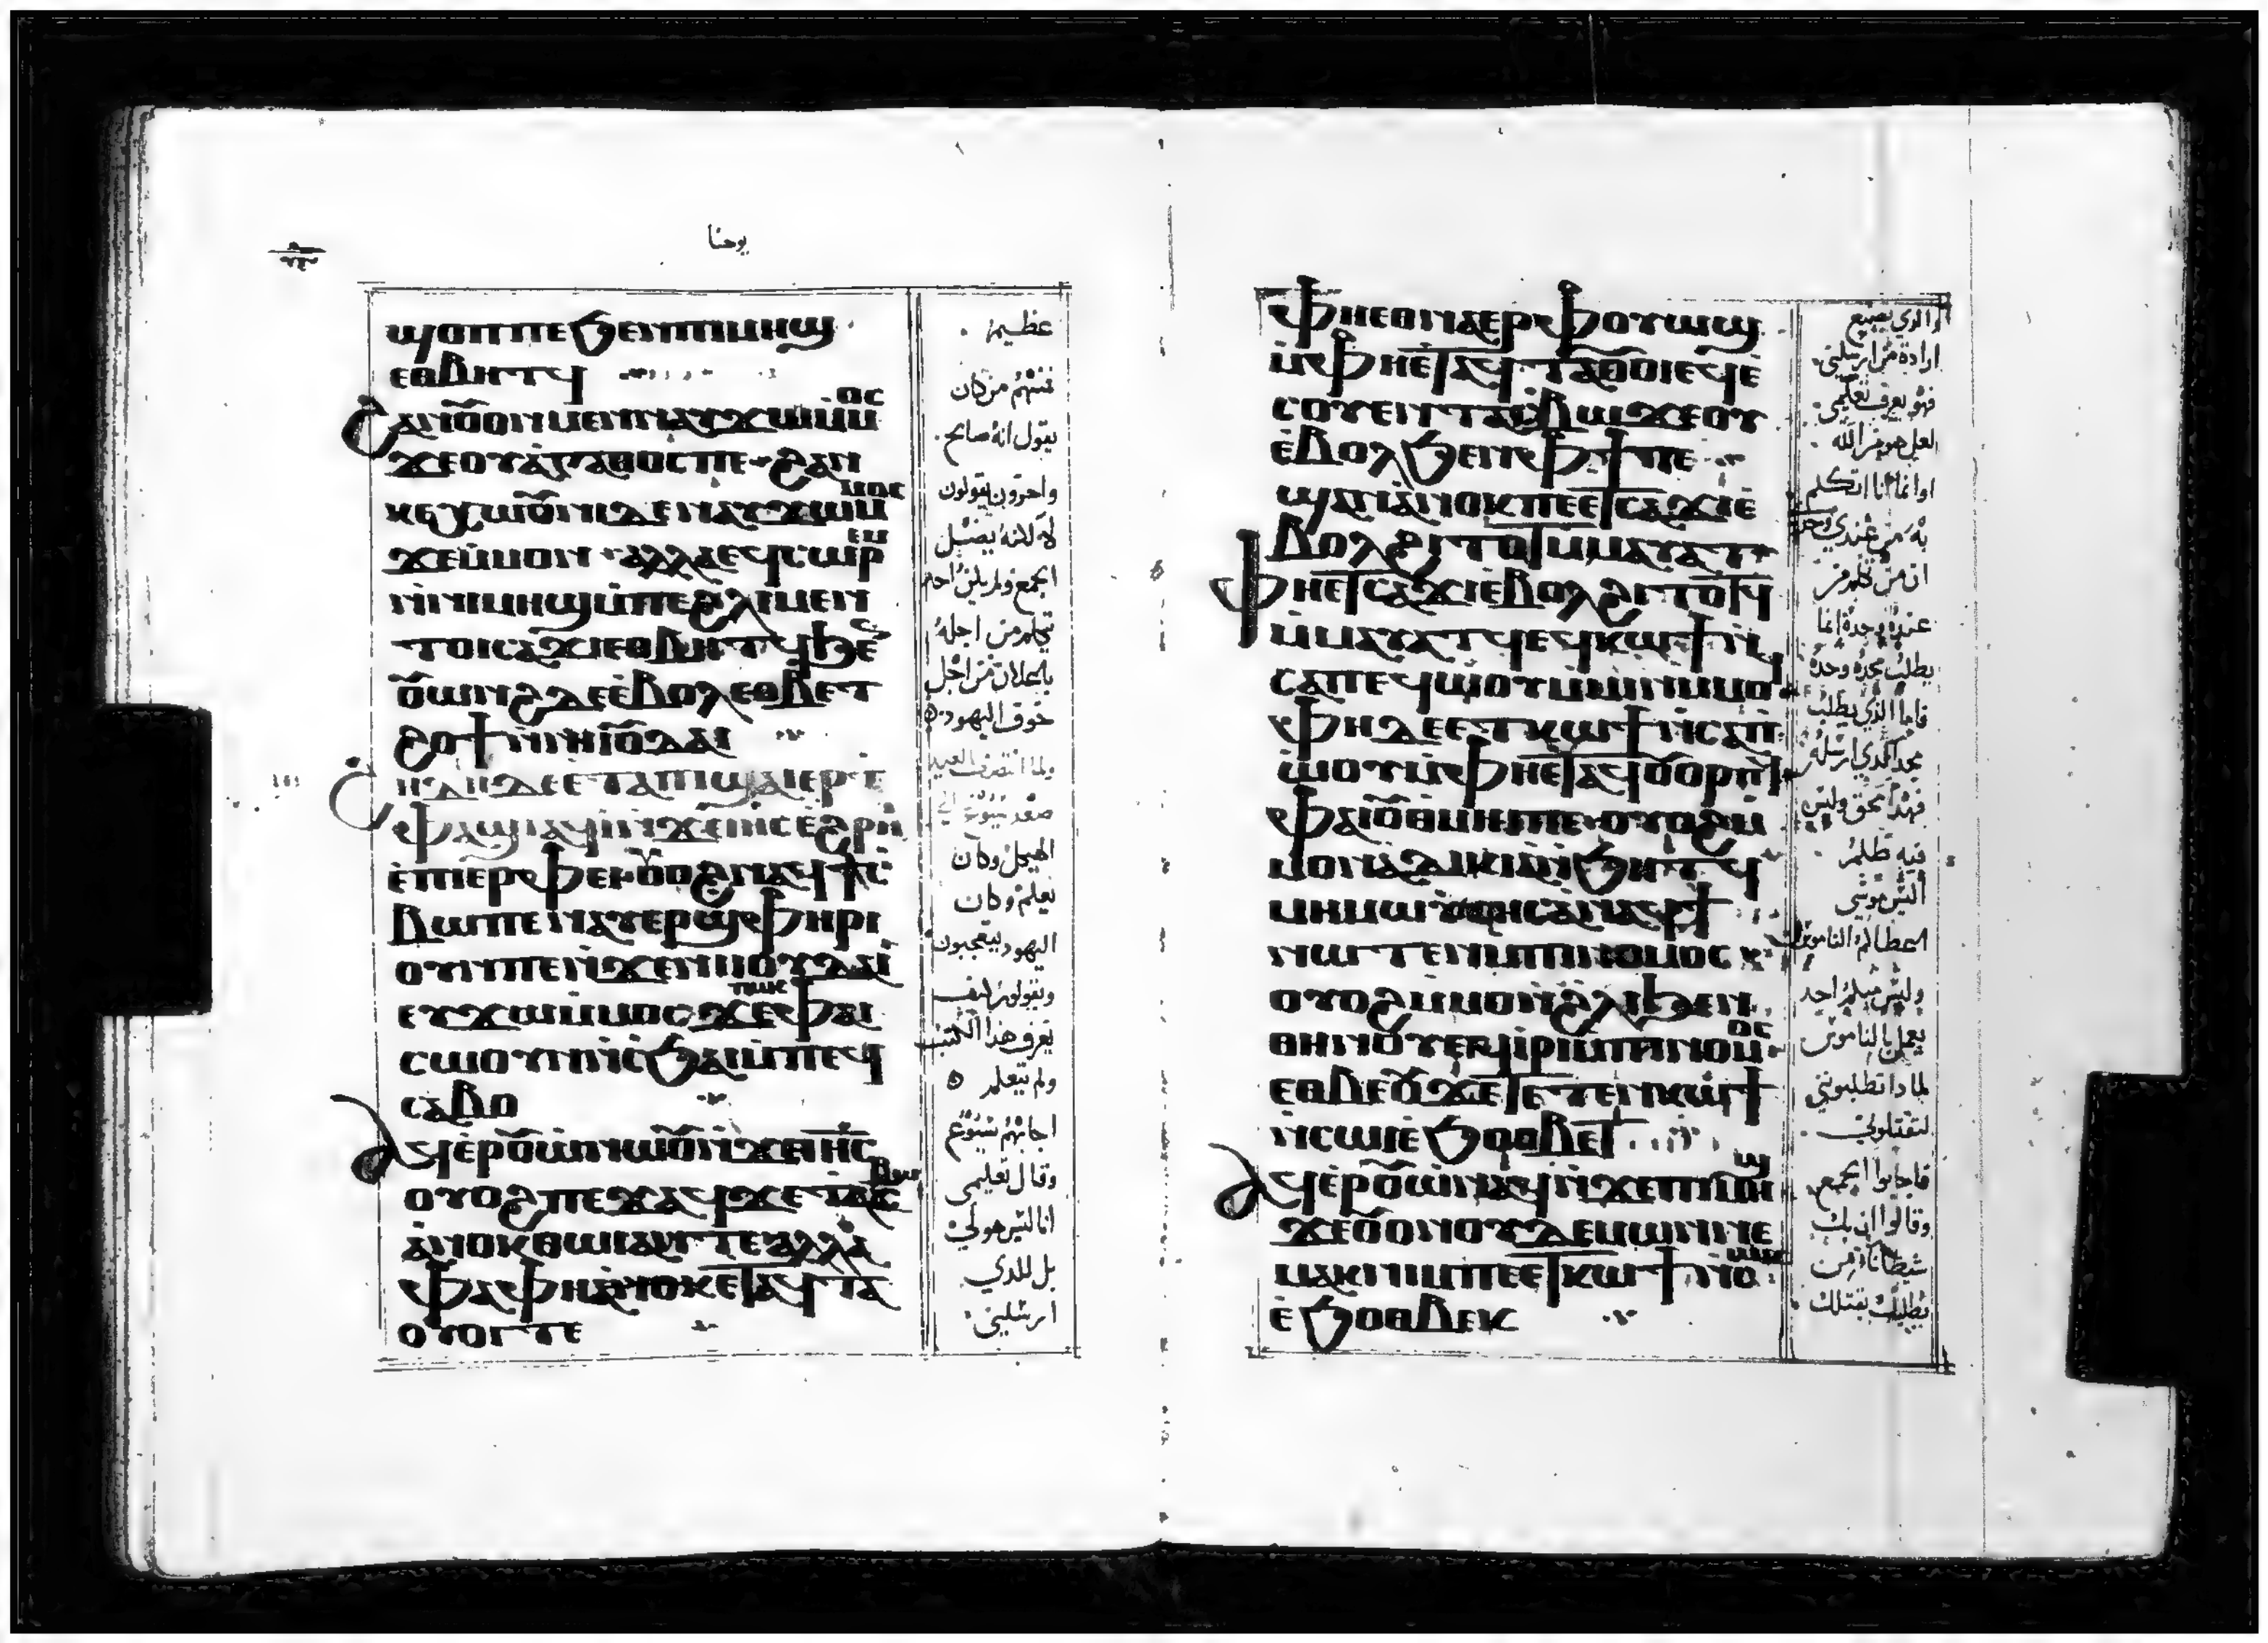 يوحنا
ϣⲟⲡⲡⲉϧⲉⲛⲡⲓⲙⲏϣ
ⲉⲑⲃⲏⲧϥ
ϩⲁⲛⲟⲩⲟⲛⲙⲉⲛⲛⲁⲩϫⲱⲙⲙⲟⲥ
ϫⲉⲟⲩⲁⲅⲁⲑⲟⲥⲡⲉ ϩⲁⲛ
ⲕⲉⲭⲱⲟⲩⲛⲓⲇⲉⲛⲁⲩϫⲱⲙⲙⲟⲥ
ϫⲉⲙⲙⲟⲛ ⲁⲗⲗⲁⲉϥⲥⲱⲣⲉⲙ
ⲙⲡⲓⲙⲏϣ ⲙⲡⲉϩⲗⲓⲙⲉⲛ
ⲧⲟⲓⲥⲁϫⲓⲉⲑⲃⲏⲧϥϧⲉⲛ
ⲟⲩⲱⲛϩⲇⲉⲉⲃⲟⲗⲉⲑⲃⲉⲧ
ϩⲟϯⲛⲛⲓⲟⲩⲇⲁⲓ
ϩⲏⲇⲏⲇⲉⲉⲧⲁⲡⲓϣⲁⲓⲉⲣ
ⲫⲁϣⲓⲁϥⲓⲛϫⲉⲓⲏⲥⲉϩⲣⲏⲓ
ⲉⲡⲓⲉⲣⲫⲉⲓ ⲟⲩⲟϩⲛⲁϥϯⲥ
ⲃⲱⲡⲉⲛⲁⲩⲉⲣϣⲫⲏⲣⲓ
ⲟⲩⲛⲡⲉⲛϫⲉⲛⲓⲟⲩⲇⲁⲓ
ⲉⲩϫⲱⲙⲙⲟⲥϫⲉⲡⲱⲥⲫⲁⲓ
ⲥⲱⲟⲩⲛⲛⲥϧⲁⲓⲙⲡⲉϥ
ⲥⲁⲃⲟ
ⲁϥⲉⲣⲟⲩⲱⲛⲱⲟⲩⲛϫⲉⲓⲏⲥ
ⲟⲩⲟϩⲡⲉϫⲁϥϫⲉⲧⲁⲥⲃⲱ
ⲁⲛⲟⲕⲑⲱⲓⲁⲛⲧⲉⲁⲗⲗⲁ
ⲫⲁⲫⲏⲁⲛⲟⲕⲉⲧⲁϥⲧⲁ
ⲟⲩⲟⲓⲧⲉ
عظيم
فمنهم من كان
يقول انه صالح
واخرون يقولون
لا لانه يضل
الجمع ولم يكن احد
يتكلم من اجله
خوف اليهود
الهيكل وكان
يعلم وكان
اليهود يتعجبون
ويقولون كيف
يعرف هذا الكتب
ولم يتعلم
اجابهم يسوع
وقال تعليمي
انا ليس هو لي
بل للدي
ارسلني
ⲫⲏⲉⲑⲛⲁⲉⲣⲫⲟⲩⲱϣ
ⲙⲫⲏⲉⲧⲁϥⲧⲁⲟⲩⲟⲓⲉϥⲉ
ⲥⲟⲩⲉⲛⲧⲁⲥⲃⲱϫⲉⲟⲩ
ⲉⲃⲟⲗϧⲉⲛⲫϯⲡⲉ
ϣⲁⲛⲁⲛⲟⲕⲡⲉⲉⲧⲥⲁϫⲓⲉ
ⲃⲟⲗϩⲓⲧⲟⲧⲙⲙⲁⲩⲁⲧ
ⲫⲏⲉⲧⲥⲁϫⲓⲉⲃⲟⲗϩⲓⲧⲟⲧϥ
ⲙⲙⲁⲩⲁⲧϥⲉϥⲕⲱϯⲛ
ⲥⲁⲡⲉϥⲱⲟⲩⲙⲙⲓⲛⲙⲙⲟϥ
ⲫⲏⲇⲉⲉⲧⲕⲱϯⲛⲥⲁⲡ
ⲱⲟⲩⲙⲫⲏⲉⲧⲁϥⲟⲩⲟⲣⲡϥ
ⲫⲁⲓⲟⲩⲑⲙⲏⲓⲡⲉ ⲟⲩⲟϩⲙ
ⲙⲟⲛⲁⲇⲓⲕⲓⲁⲛϧⲏⲧϥ
ⲙⲏⲙⲱⲩⲥⲏⲥⲁⲛⲁϥϯ
ⲛⲱⲧⲉⲛⲙⲡⲓⲛⲟⲙⲟⲥ
ⲟⲩⲟϩⲙⲙⲟⲛϩⲗⲓϧⲉⲛ
ⲑⲏⲛⲟⲩⲉⲣⲓⲣⲓⲙⲡⲓⲛⲟⲙⲟⲥ
ⲉⲑⲃⲉⲟⲩϫⲉⲧⲉⲧⲉⲛⲕⲱϯ
ⲛⲥⲱⲓⲉϧⲟⲑⲃⲉⲧ
ⲁϥⲉⲣⲟⲩⲱⲛⲁϥⲛϫⲉⲡⲓⲙⲏϣ
ϫⲉⲟⲩⲟⲛⲟⲩⲇⲉⲙⲱⲛⲛⲉ
ⲙⲁⲕⲛⲓⲙⲡⲉⲉⲧⲕⲱϯⲛⲥⲱⲕ
ⲉϧⲟⲑⲃⲉⲕ
والدي يصنع
ارادة من ارسلني
فهو يعرف تعليمي
لعل هو من الله
اوانما انا اتكلم
ان من تكلم من
عنده وحده انما
يطلب مجده وحده
فاما الذي يطلب
مجد الدي ارسله
فهدا محق وليس
فيه ظلم
اليس موسي
اعطاكم الناموس
وليس منكم احد
يعمل بالناموس
لمادا تطلبونني
لتقتلوني
فاجابوا الجميع
وقالوا ان بك
شيطانا من
يطلب يقتلك